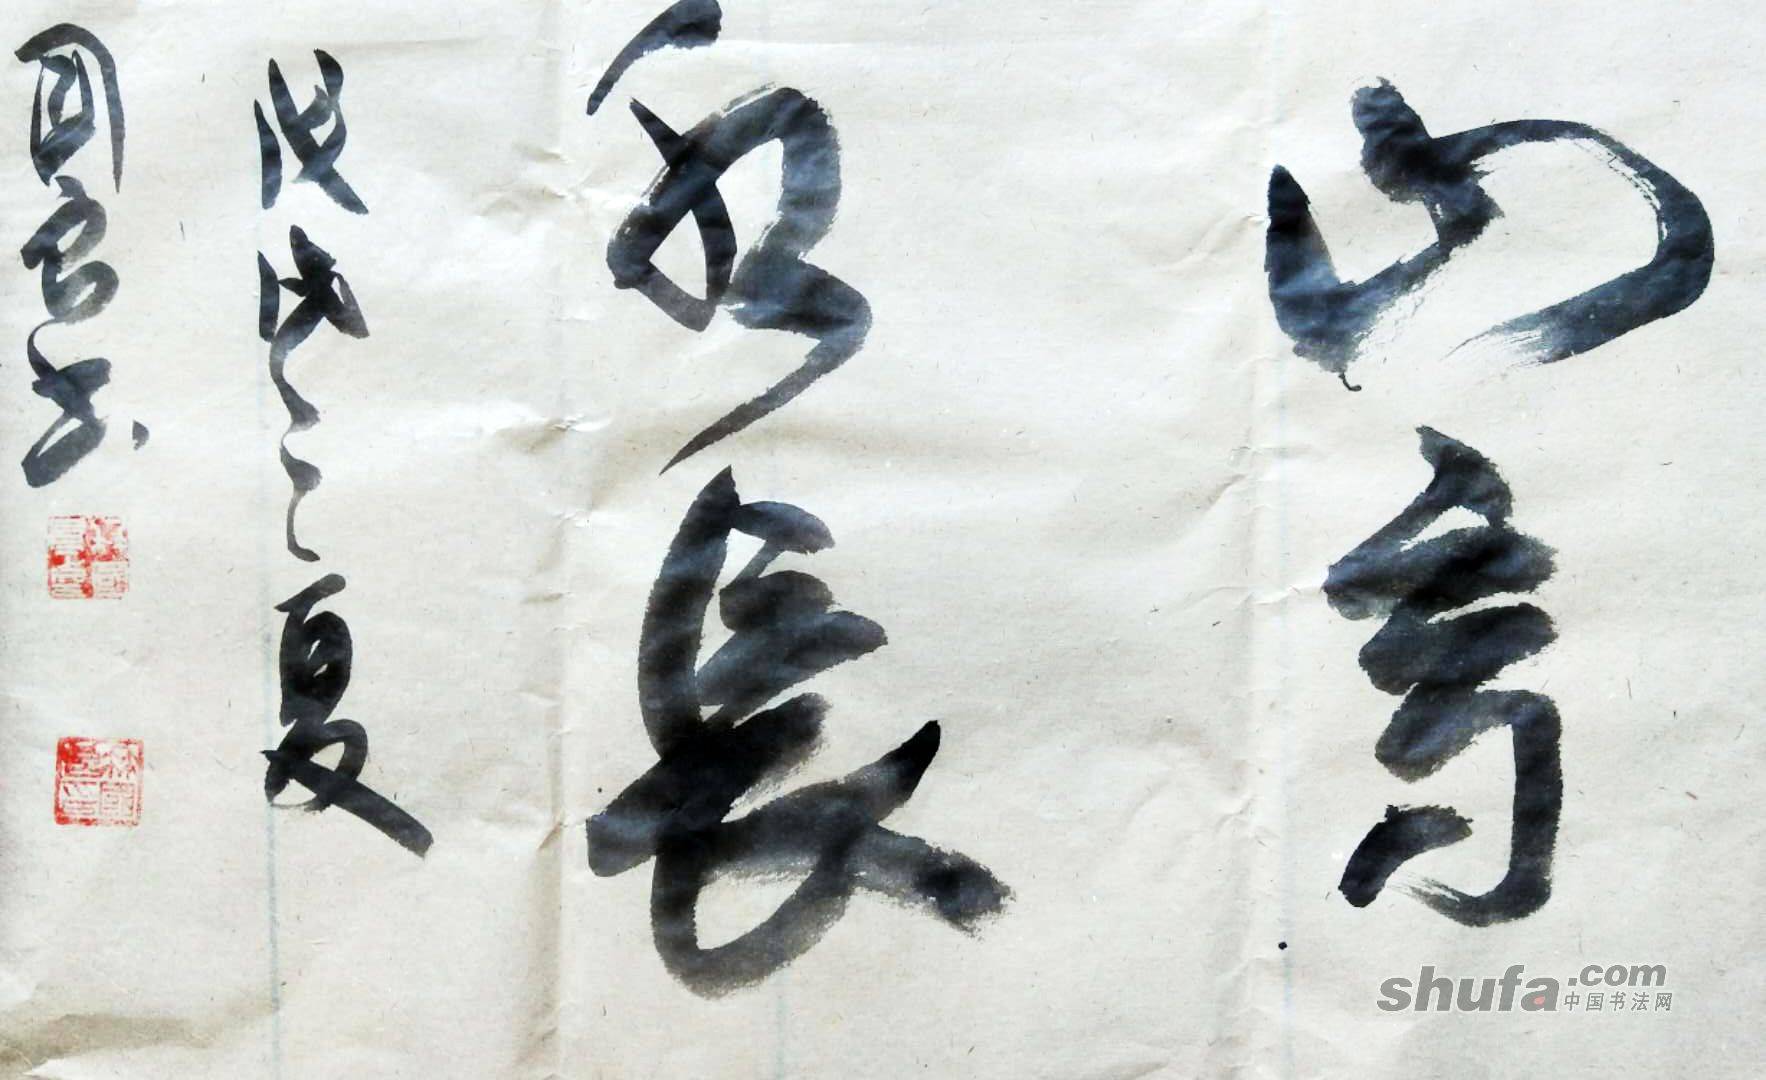 山高
水長
戊戌之夏
国书
shufa.com
中国书法网